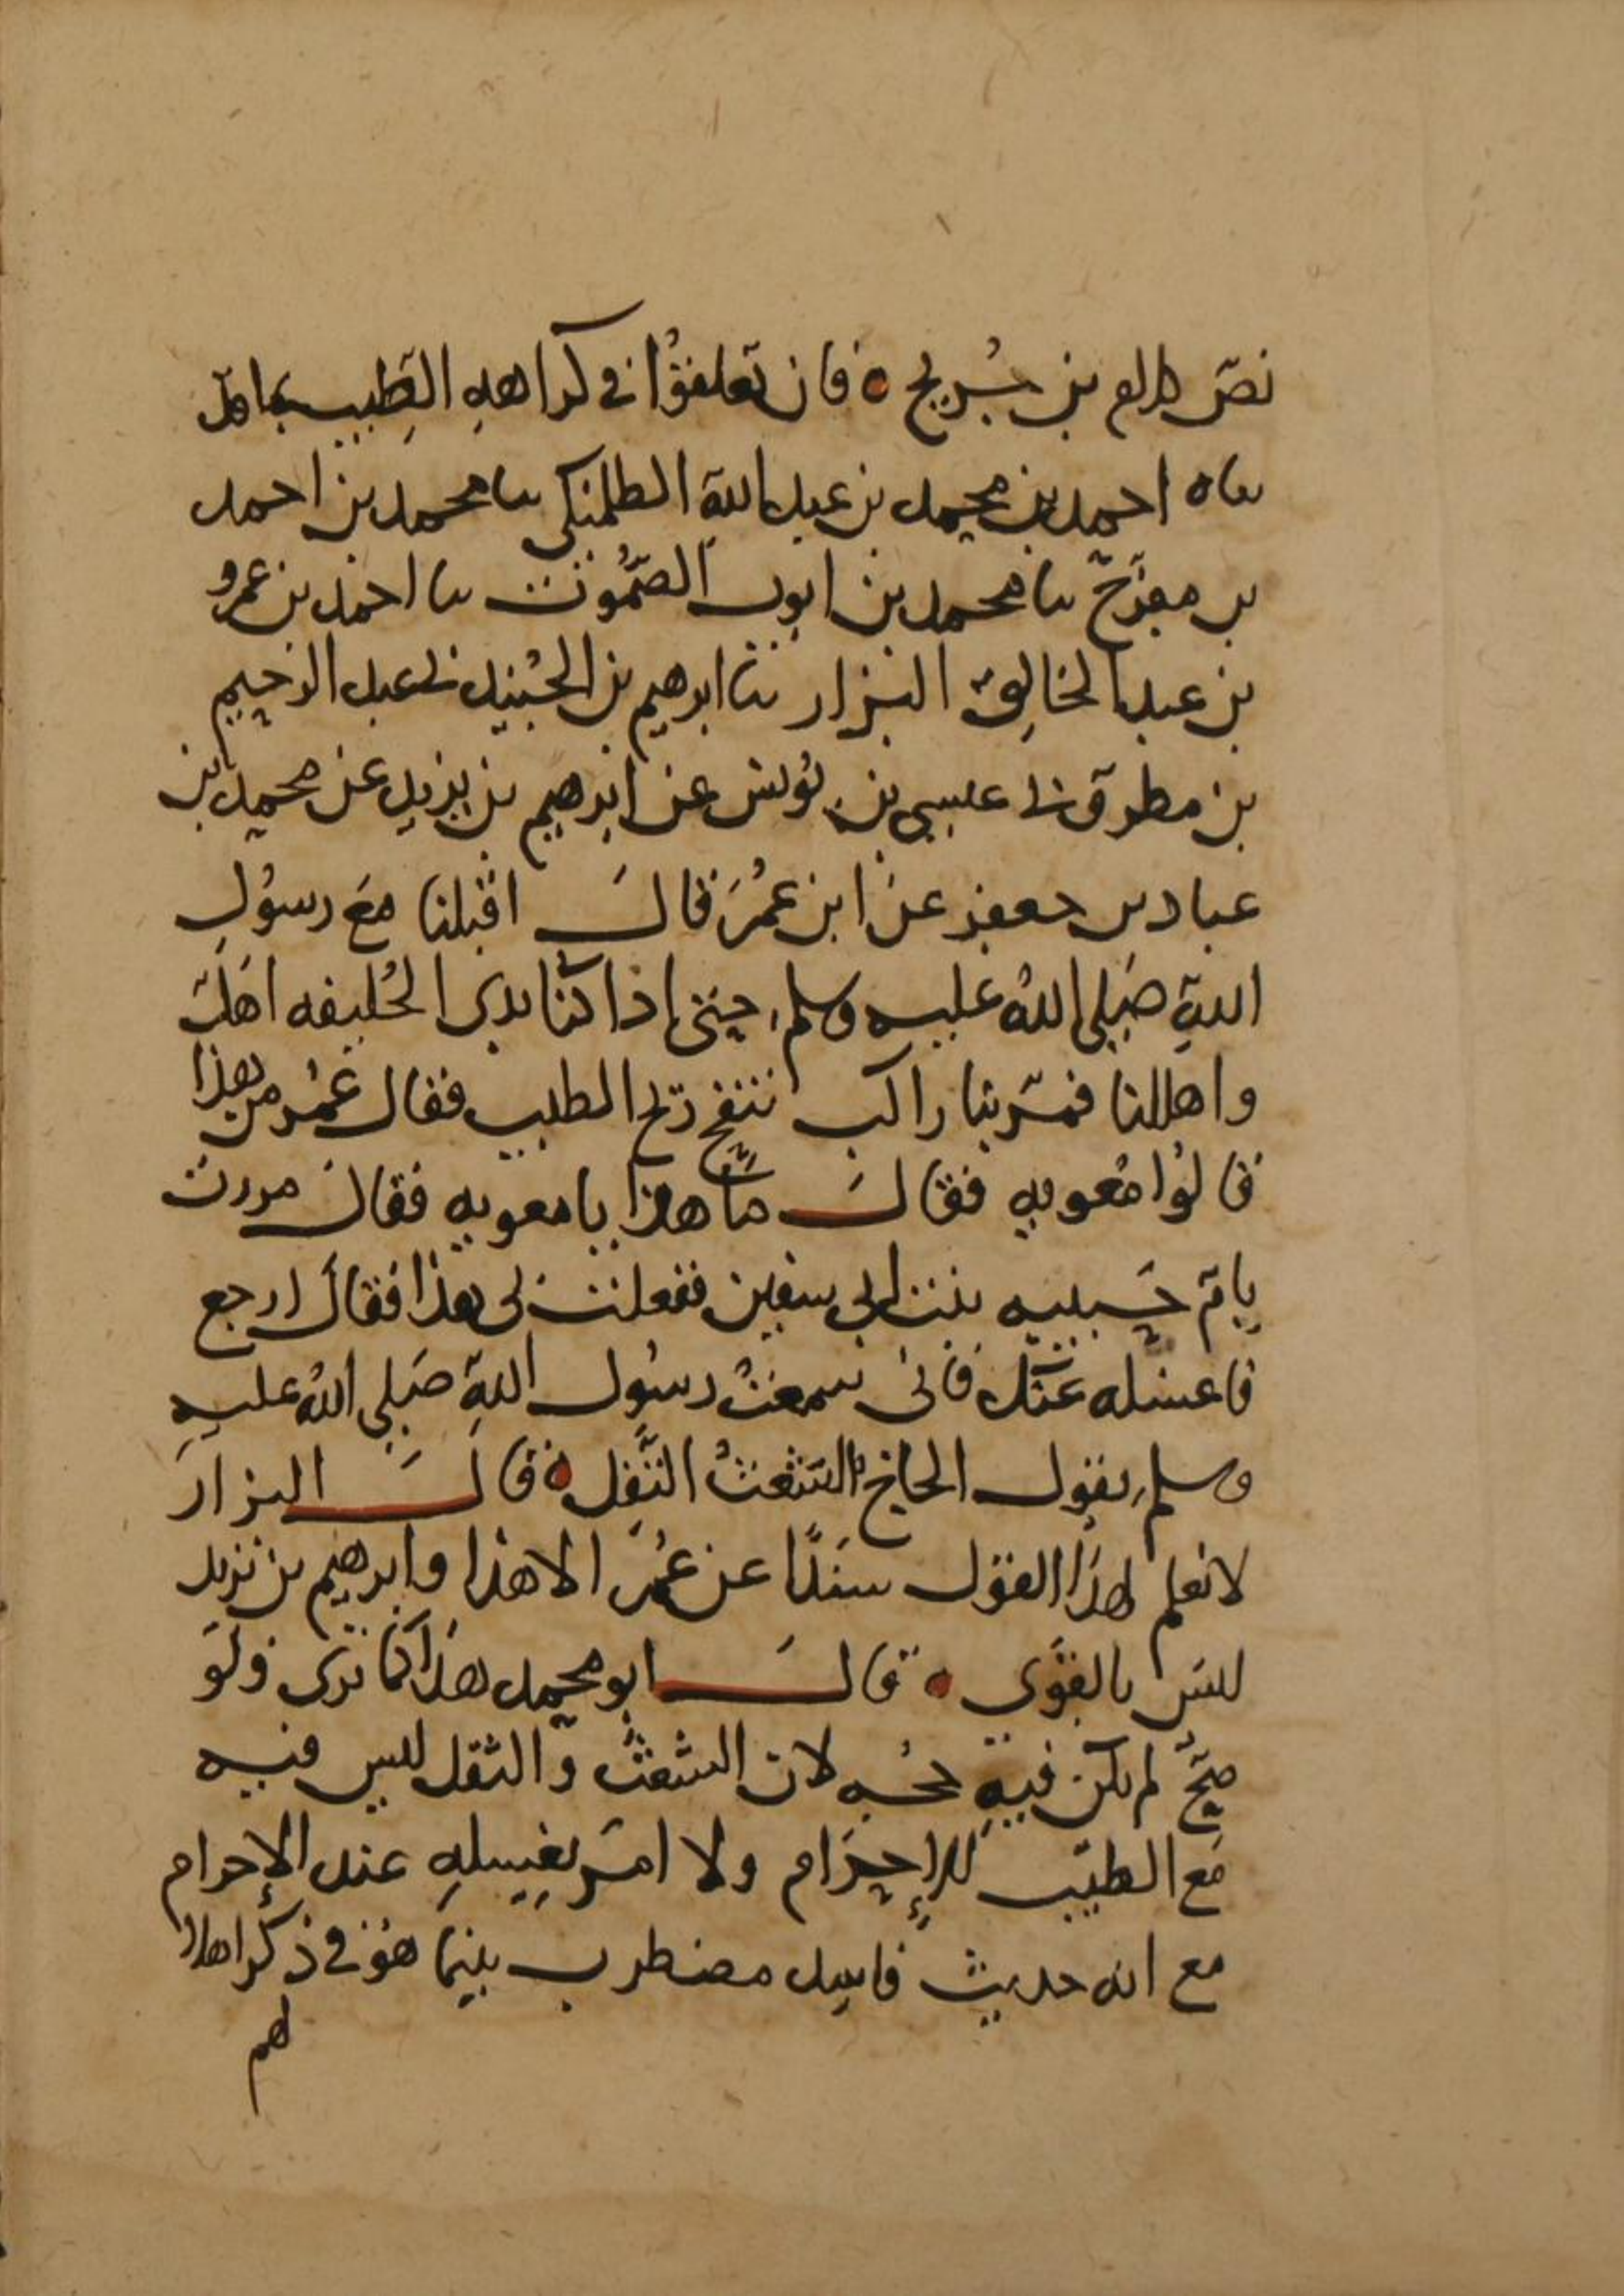 نصّ كلام بن سُريج ه فان تعلقوا في كراهه الطيب بما قد
ثناه احمد بن محمد بن عبد الله الطلمنكي ثنا محمد بن احمد
بن مفرّج ثنا محمد بن ايوب الصّمُوت ثنا احمد بن عمرو
بن عبد الخالق البزار ثنا ابرهيم بن الجُنيد ني عبد الرحيم
بن مطرّف ني عيسى بن يُونس عن ابرهيم بن يزيد عن محمد بن
عباد بن جعفر عن ابن عمُرَ قالَ اقبلنا مَعَ رسُولِ
اللهِ صَلى اللهُ عليه وسلم حتى إذا كنّا بذي الحُليفه اهَلّ
واهللنا فمَرّ بنا راكب ننفح ريح الطيب فقال عُمُر من هذا
قالوُا مُعويه فقالَ مَا هذا يا معويه فقال مررت
بامّ حَبيبه بنت ابي سفين ففعلت بي هذا فقال ارجع
فاغسله عنّك فاني سمعتُ رسُول اللهِ صَلى اللهُ عليهِ
وسلم يقول الحاجّ الشّعثُ التّفِل ه قالَ البزار
لا نعلم لهذا القول سندًا عن عُمَر الا هذا وابرهيم بن يزيد
ليسَ بالقوَي ه قالَ ابو محمد هذا كما ترى ولوَ
صَحّ لم يكن فيهِ حُجه لان الشعثَ والتفل ليس فيه
مَع الطيب للإحرَام ولا امَر بغسلهِ عند الإحرام
مع انه حديث فاسد مضطرب بينما هوُ في ذكر اهلا
لهم